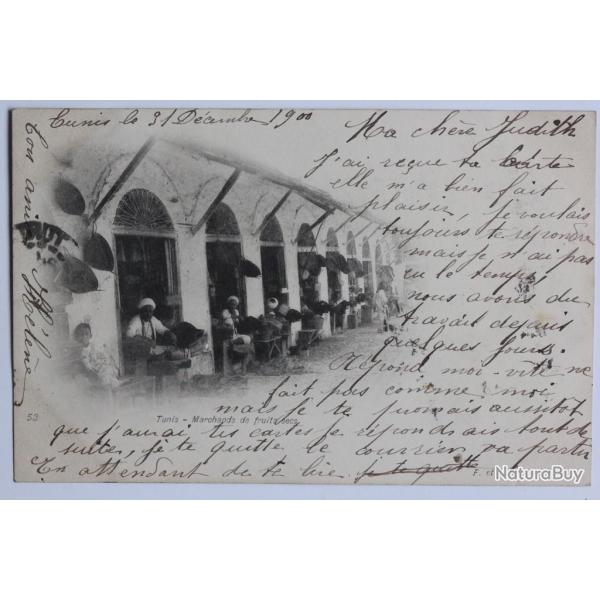 Tunis le 31 Décembre 1900
Ma chère Judith
J'ai reçue ta carte
elle m'a bien fait
plaisir, je voulais
toujours te répondre
mais je n'ai pas
eu le temps
nous avons du
travail depuis
quelques jours.
Répond moi vite ne
fait pas comme moi
mais je te promais aussitot
que j'aurai tes cartes je répondrais tout de
suite, je te quitte le courrier va partir
En attendant de te lire je te quitte
Ton amie
Hélène
53
Tunis - Marchands de fruits secs
NaturaBuy